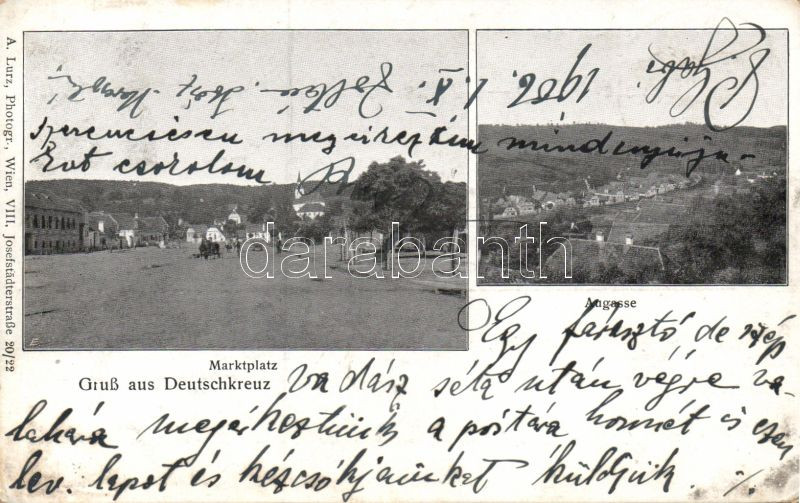 A. Lurz, Photogr., Wien, VIII, Josefstädterstraße 20/22
1906. IX. 1.
szerencsésen megérkeztünk mindnyája-
kat csókolom
darabanth
Augasse
Marktplatz
Gruß aus Deutschkreuz
Egy fárasztó de szép
vadász séta után végre va-
lahára megérkeztünk a postára honnét is ezen
lev. lapot és kézcsókjainket küldjük.